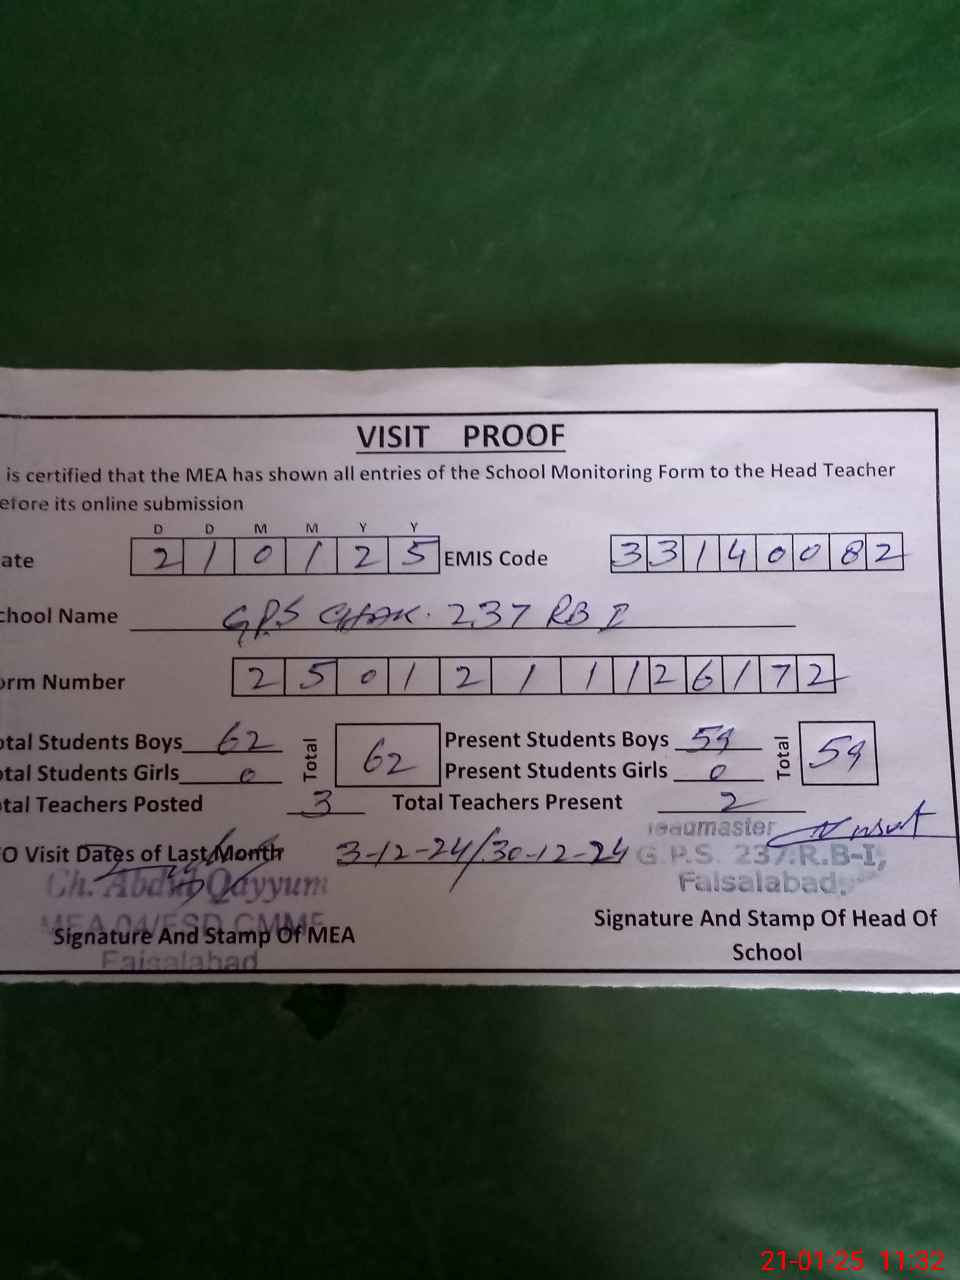 VISIT PROOF
is certified that the MEA has shown all entries of the School Monitoring Form to the Head Teacher
efore its online submission
D D M M Y Y
ate 2 1 0 1 2 5 EMIS Code 3 3 1 4 0 0 8 2
chool Name GPS CHAK. 237 RB I
orm Number 2 5 0 1 2 1 1 1 2 6 1 7 2
otal Students Boys 62 Total 62 Present Students Boys 59 Total 59
otal Students Girls 0 Present Students Girls 0
otal Teachers Posted 3 Total Teachers Present 2
EO Visit Dates of Last Month 3-12-24/30-12-24
Headmaster
G.P.S. 237.R.B-I,
Faisalabad
Ch. Abdul Qayyum
MEA 04/FSD CMMF
Faisalabad
Signature And Stamp Of MEA
Signature And Stamp Of Head Of
School
21-01-25 11:32